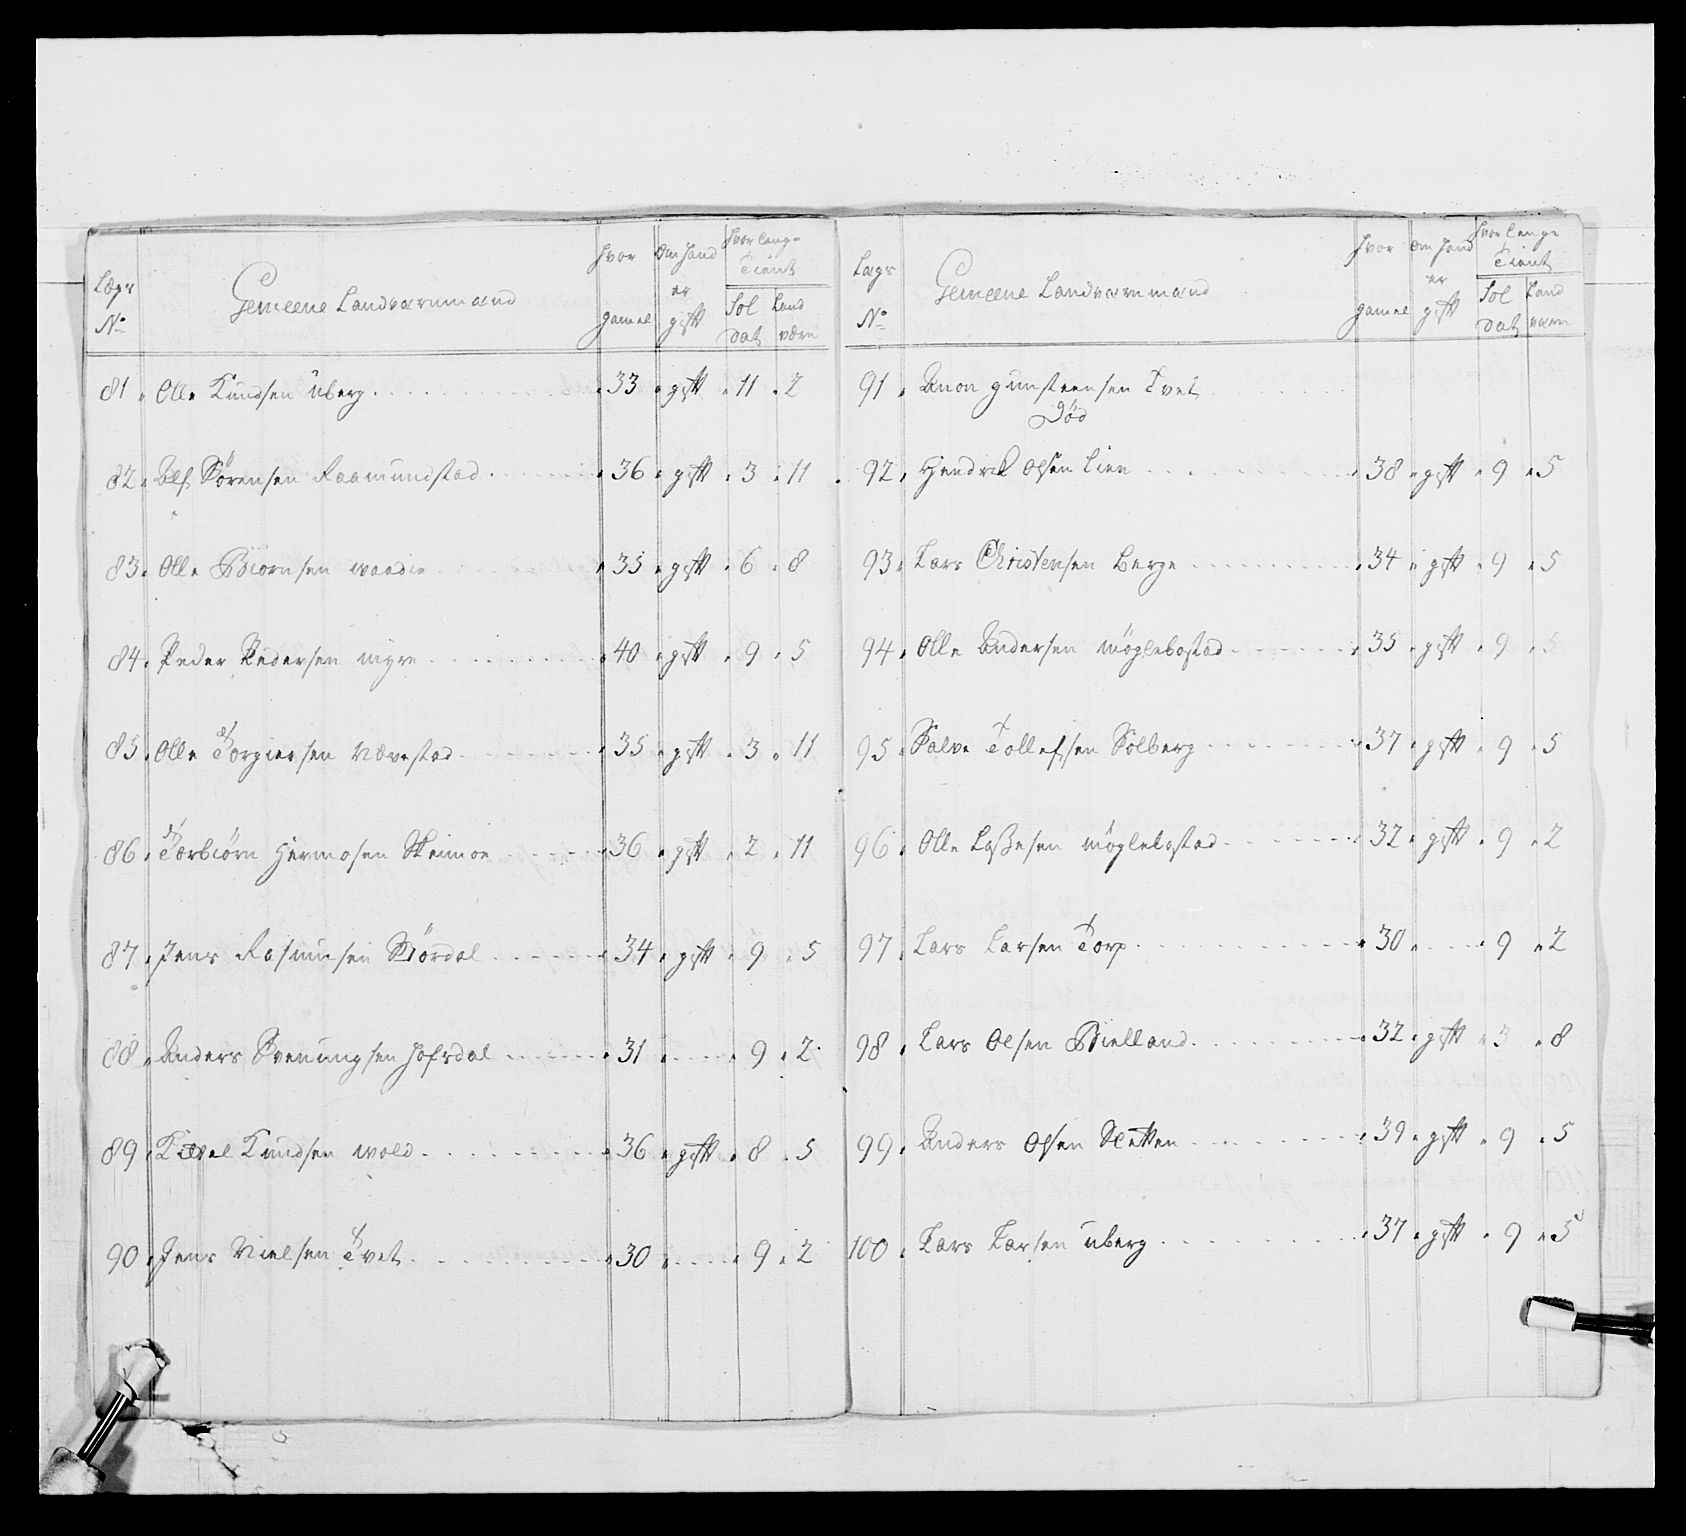 Lægs No Gemeene Landværnmænd hvor gamel om hand er gift hvorlenge Tient Sol dat Land værn
81 Olle Knudsen Uberg 33 gift 11 2
82 Alf Sörensen Raamundstad 36 gift 3 11
83 Olle Biornsen 35 gift 6 8
84 Peder Pedersen myre 40 gift 9 5
85 Olle Torgiersen Nævestad 35 gift 3 11
86 Torbiörn Hermosen Skeimoe 36 gift 2 11
87 Jens Rasmusen 34 gift 9 5
88 Anders Svenungsen Hofsdal 31 9 2
89 Knudsen wold 36 gift 8 5
90 Jens Nielsen Tvet 30 9 2
Lægs No Gemeene Landværnmænd hvor gamel om hand er gift hvorlenge Tient Sol dat Land værn
91 Anon gunsteensen Tvet
Död
92 Hendrick Olsen Lien 38 gift 9 5
93 Lars Christensen Berge 34 gift 9 5
94 Olle Andersen möglebostad 35 gift 9 5
95 Salve Tollefsen Solberg 37 gift 9 5
96 Olle Laßesen möglebostad 32 gift 9 2
97 Lars Larsen Torp 30 9 2
98 Lars Olsen Bielland 32 gift 3 8
99 Anders Olsen Sletten 39 gift 9 5
100 Lars Larsen Uberg 37 gift 9 5